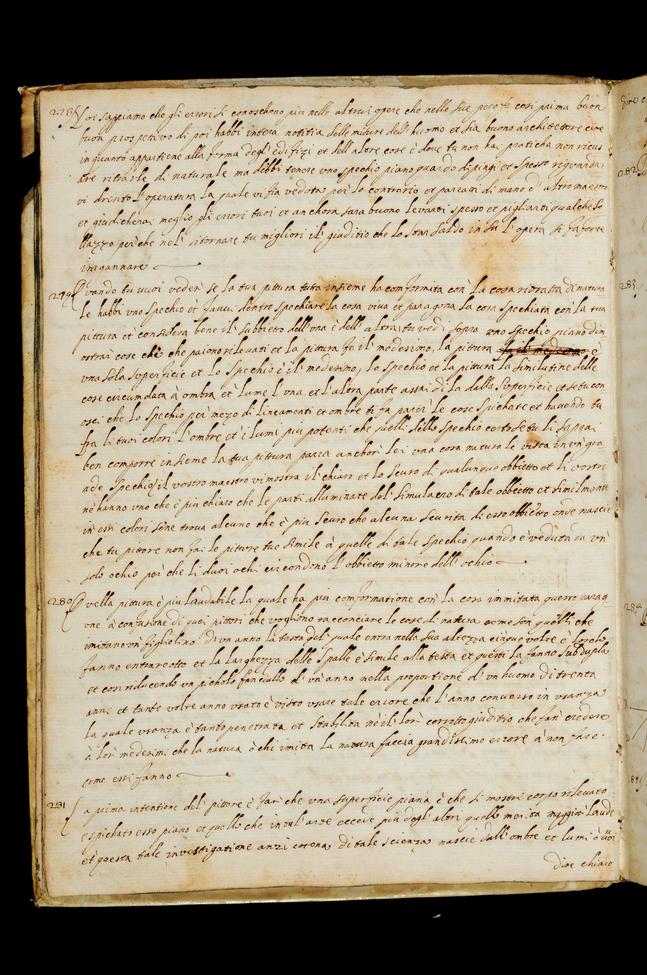 278 Noi sappiamo che gli errori si conoschono piu nelle altrui opere che nelle sue però fa così prima buon
buon prospetivo di poi habbi intera notitia delle misure dell'huomo et sia buono architettore cioe
in quanto appartiene alla forma degl'edifizi et dell'altre cose è dove tu non hai praticha non ricus
are ritrarle di naturale ma debbi tenere uno spechio piano quando dipingi et spesso riguarda
vi drento l'operatua la quale vi fia veduta per lo contrario et parrati di mano d'altro maestro
et giudicherai meglio gli errori tuoi et anchora sara buono levarsi spesso et pigliarsi qualche so
llazzo perche nel ritornare tu migliori il giuditio che lo star saldo in su l'opera ti fa forte
ingannare
279 Quando tu vuoi vedere se la tua pitura tutta insieme ha conformita con la cosa ritratta di natura
le habbi uno spechio et favvi dentro spechiare la cosa viva et paragona la cosa spechiata con la tua
pittura et considera bene il subbietto dell'una è dell'altra tu vedi sopra uno spechio piano dim
ostrai cose che paiono rilevati et la pittura fa il medesimo, la pitura è
una sola superficie et lo spechio è il medesimo, lo spechio et la pitura la similitudine delle
cose circumdata d'ombra et lume l'una et l'altra parte assai di la dalla superficie et se tu con
osci che lo spechio per mezo di lineamenti et ombre ti fa parere le cose spichate et havendo tu
fra li tuoi colori l'ombre et i lumi piu potenti che quelli dello spechio certo se tu li saprai
ben comporre insieme la tua pittura parra anchor lei una cosa naturale vista in un gra
nde spechio il vostro maestro vi mostra il chiaro et lo scuro di qualunque obbietto et li vostri
ne hanno uno che è piu chiaro che le parti alluminate del simulacro di tale obbietto et similmente
in essi colori sene trova alcuno che è piu scuro che alcuna scurita di esso obbietto onde nascie
che tu pitore non fai le piture tue simile à quelle di tale spechio quando è veduta da un
solo ochio perche li duoi ochi circondono l'obbietto minore dell'ochio
280 Quella pittura è piu laudabile la quale ha piu conformatione con la cosa immitata questo parag
one à confusione di quei pittori che vogliono racconciare le cose di natura come son quelli che
imitano un figliolino d'un anno la testa del quale entra nella sua altezza cinque volte è loro la
fanno entrare otto et la larghezza delle spalle è simile alla testa et questi la fanno subdupla
et cosi riducendo un picholo fanciullo d'un anno nella proportione d'un huomo di trenta
anni et tante volte anno usato è visto usare tale errore che l'anno converso in usanza
la quale usanza è tanto penetrata et stabilita nè il lor corrotto giuditio che fan credere
à lor medesimi che la natura è chi imita la natura faccia grandissimo errore à non fare
come essi fanno
281 La prima intentione del pittore è fare che una superficie piana è che si mostri corpo rilevato
e spichato esso piano et quello che in tal arte eccede piu degl'altri quello merita maggior laude
et questa tale investigatione anzi corona di tale scienza nascie dall'ombre et lumi ò vuoi
dire chiaro